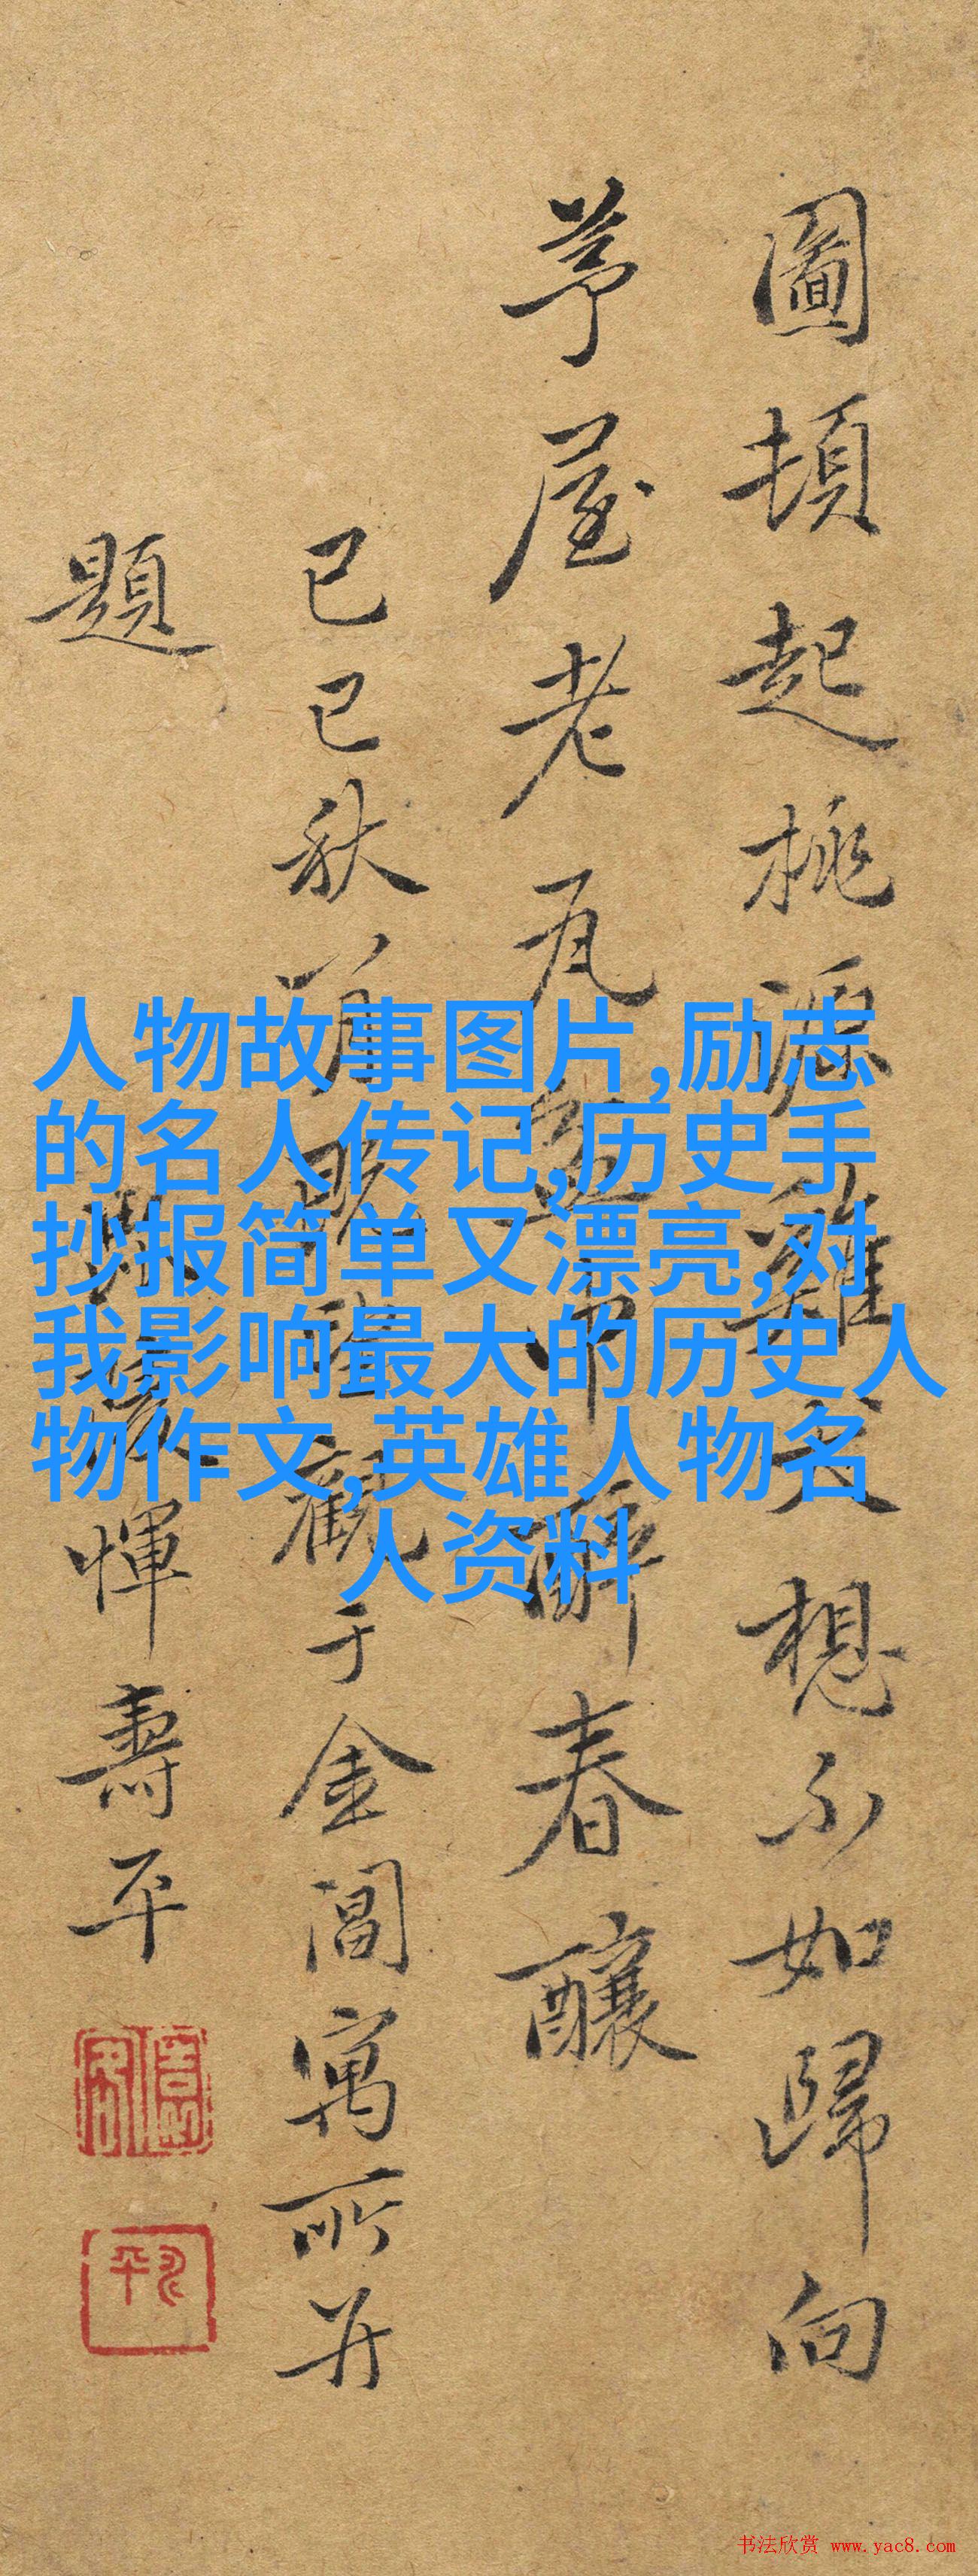 圖頓起桃源雞犬想不如歸向
茅屋老瓦盆中醉春釀
己巳秋八月晚詮觀于金閶寓所并
題
惲壽平
人物故事图片,励志
的名人传记,历史手
抄报简单又漂亮,对
我影响最大的历史人
物作文,英雄人物名
人资料
书法欣赏 www.yac8.com